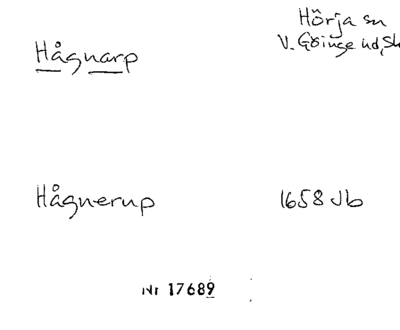 Hörja sn
Hågnarp
V. Göinge hd, Sk
Hågnerup 1658 Jb
Nr 17689